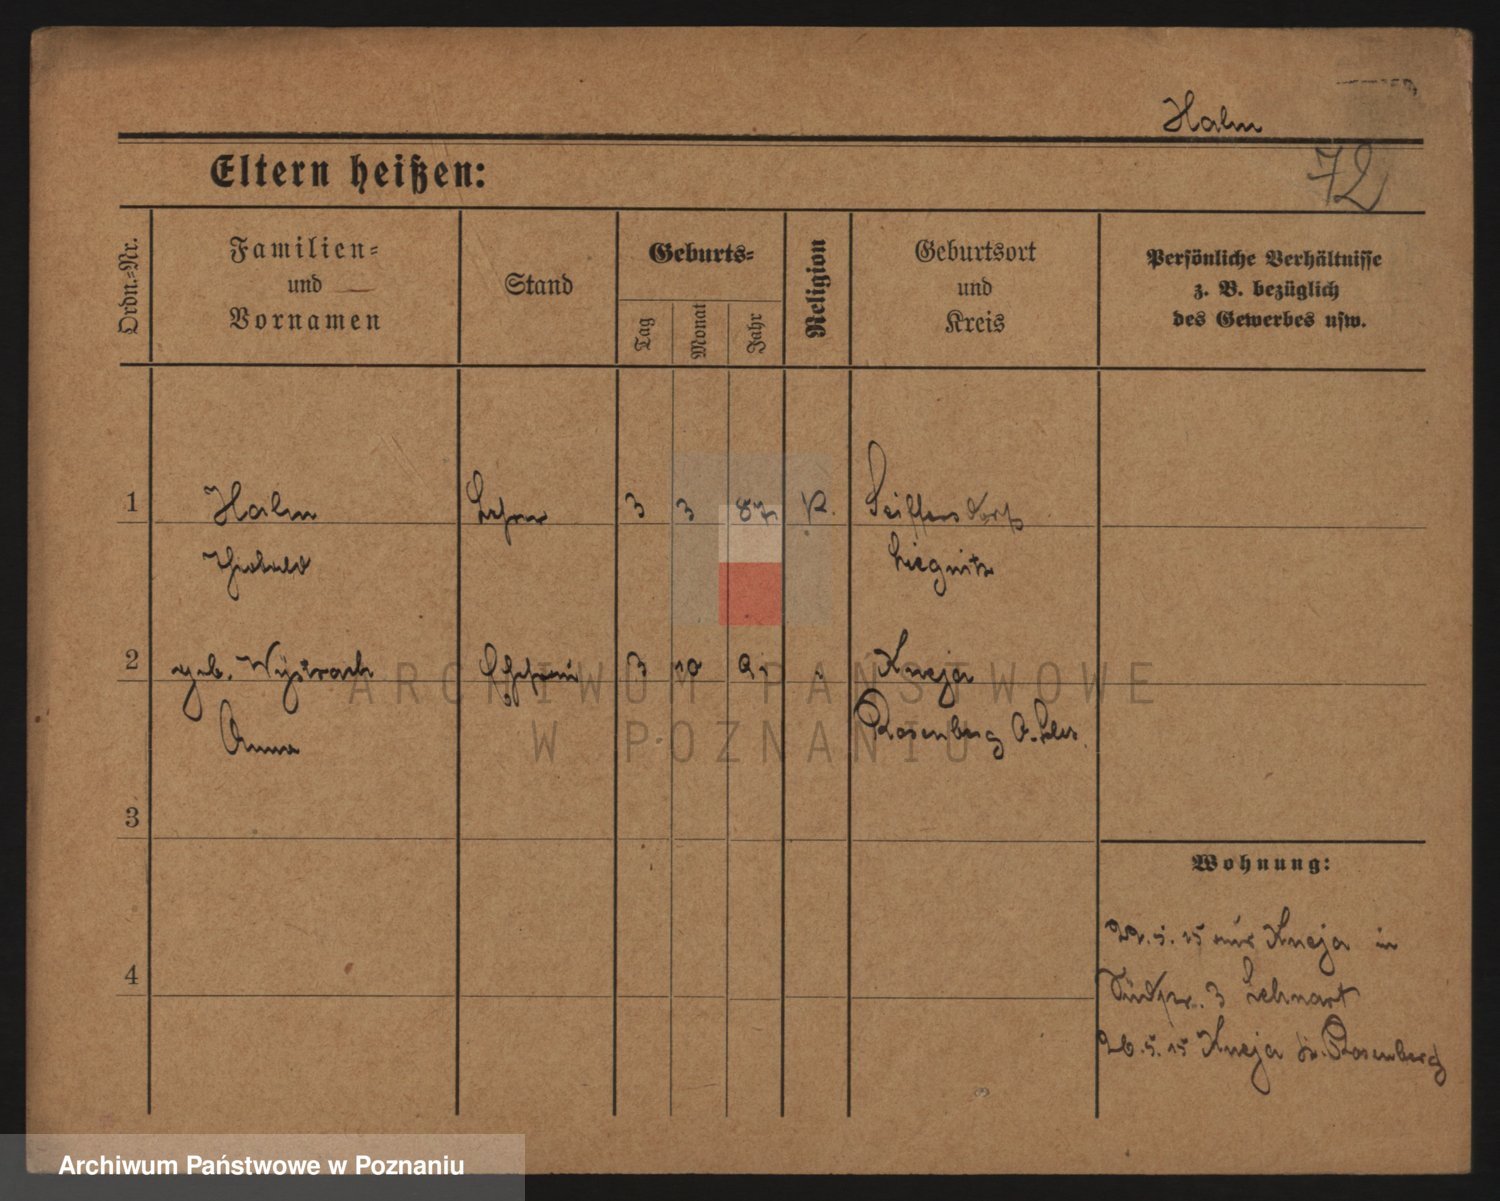 Halm
72
Eltern heißen:
Ordn.-Nr.
Familien-
und
Vornamen
Stand
Geburts-
Tag
Monat
Jahr
Religion
Geburtsort
und
Kreis
Persönliche Verhältnisse
z. B. bezüglich
des Gewerbes usw.
1 Halm Lehrer 3 3 87 K. Seiffersdorf
Liegnitz
2 geb. Wystrach 3 10 91 Kneja
Anna Rosenberg O. Schles.
3
4
Wohnung:
22.5.15 aus Kneja in
Südstr. 3
26.5.15 Kneja Kr. Rosenberg
ARCHIWUM PAŃSTWOWE
W POZNANIU
Archiwum Państwowe w Poznaniu